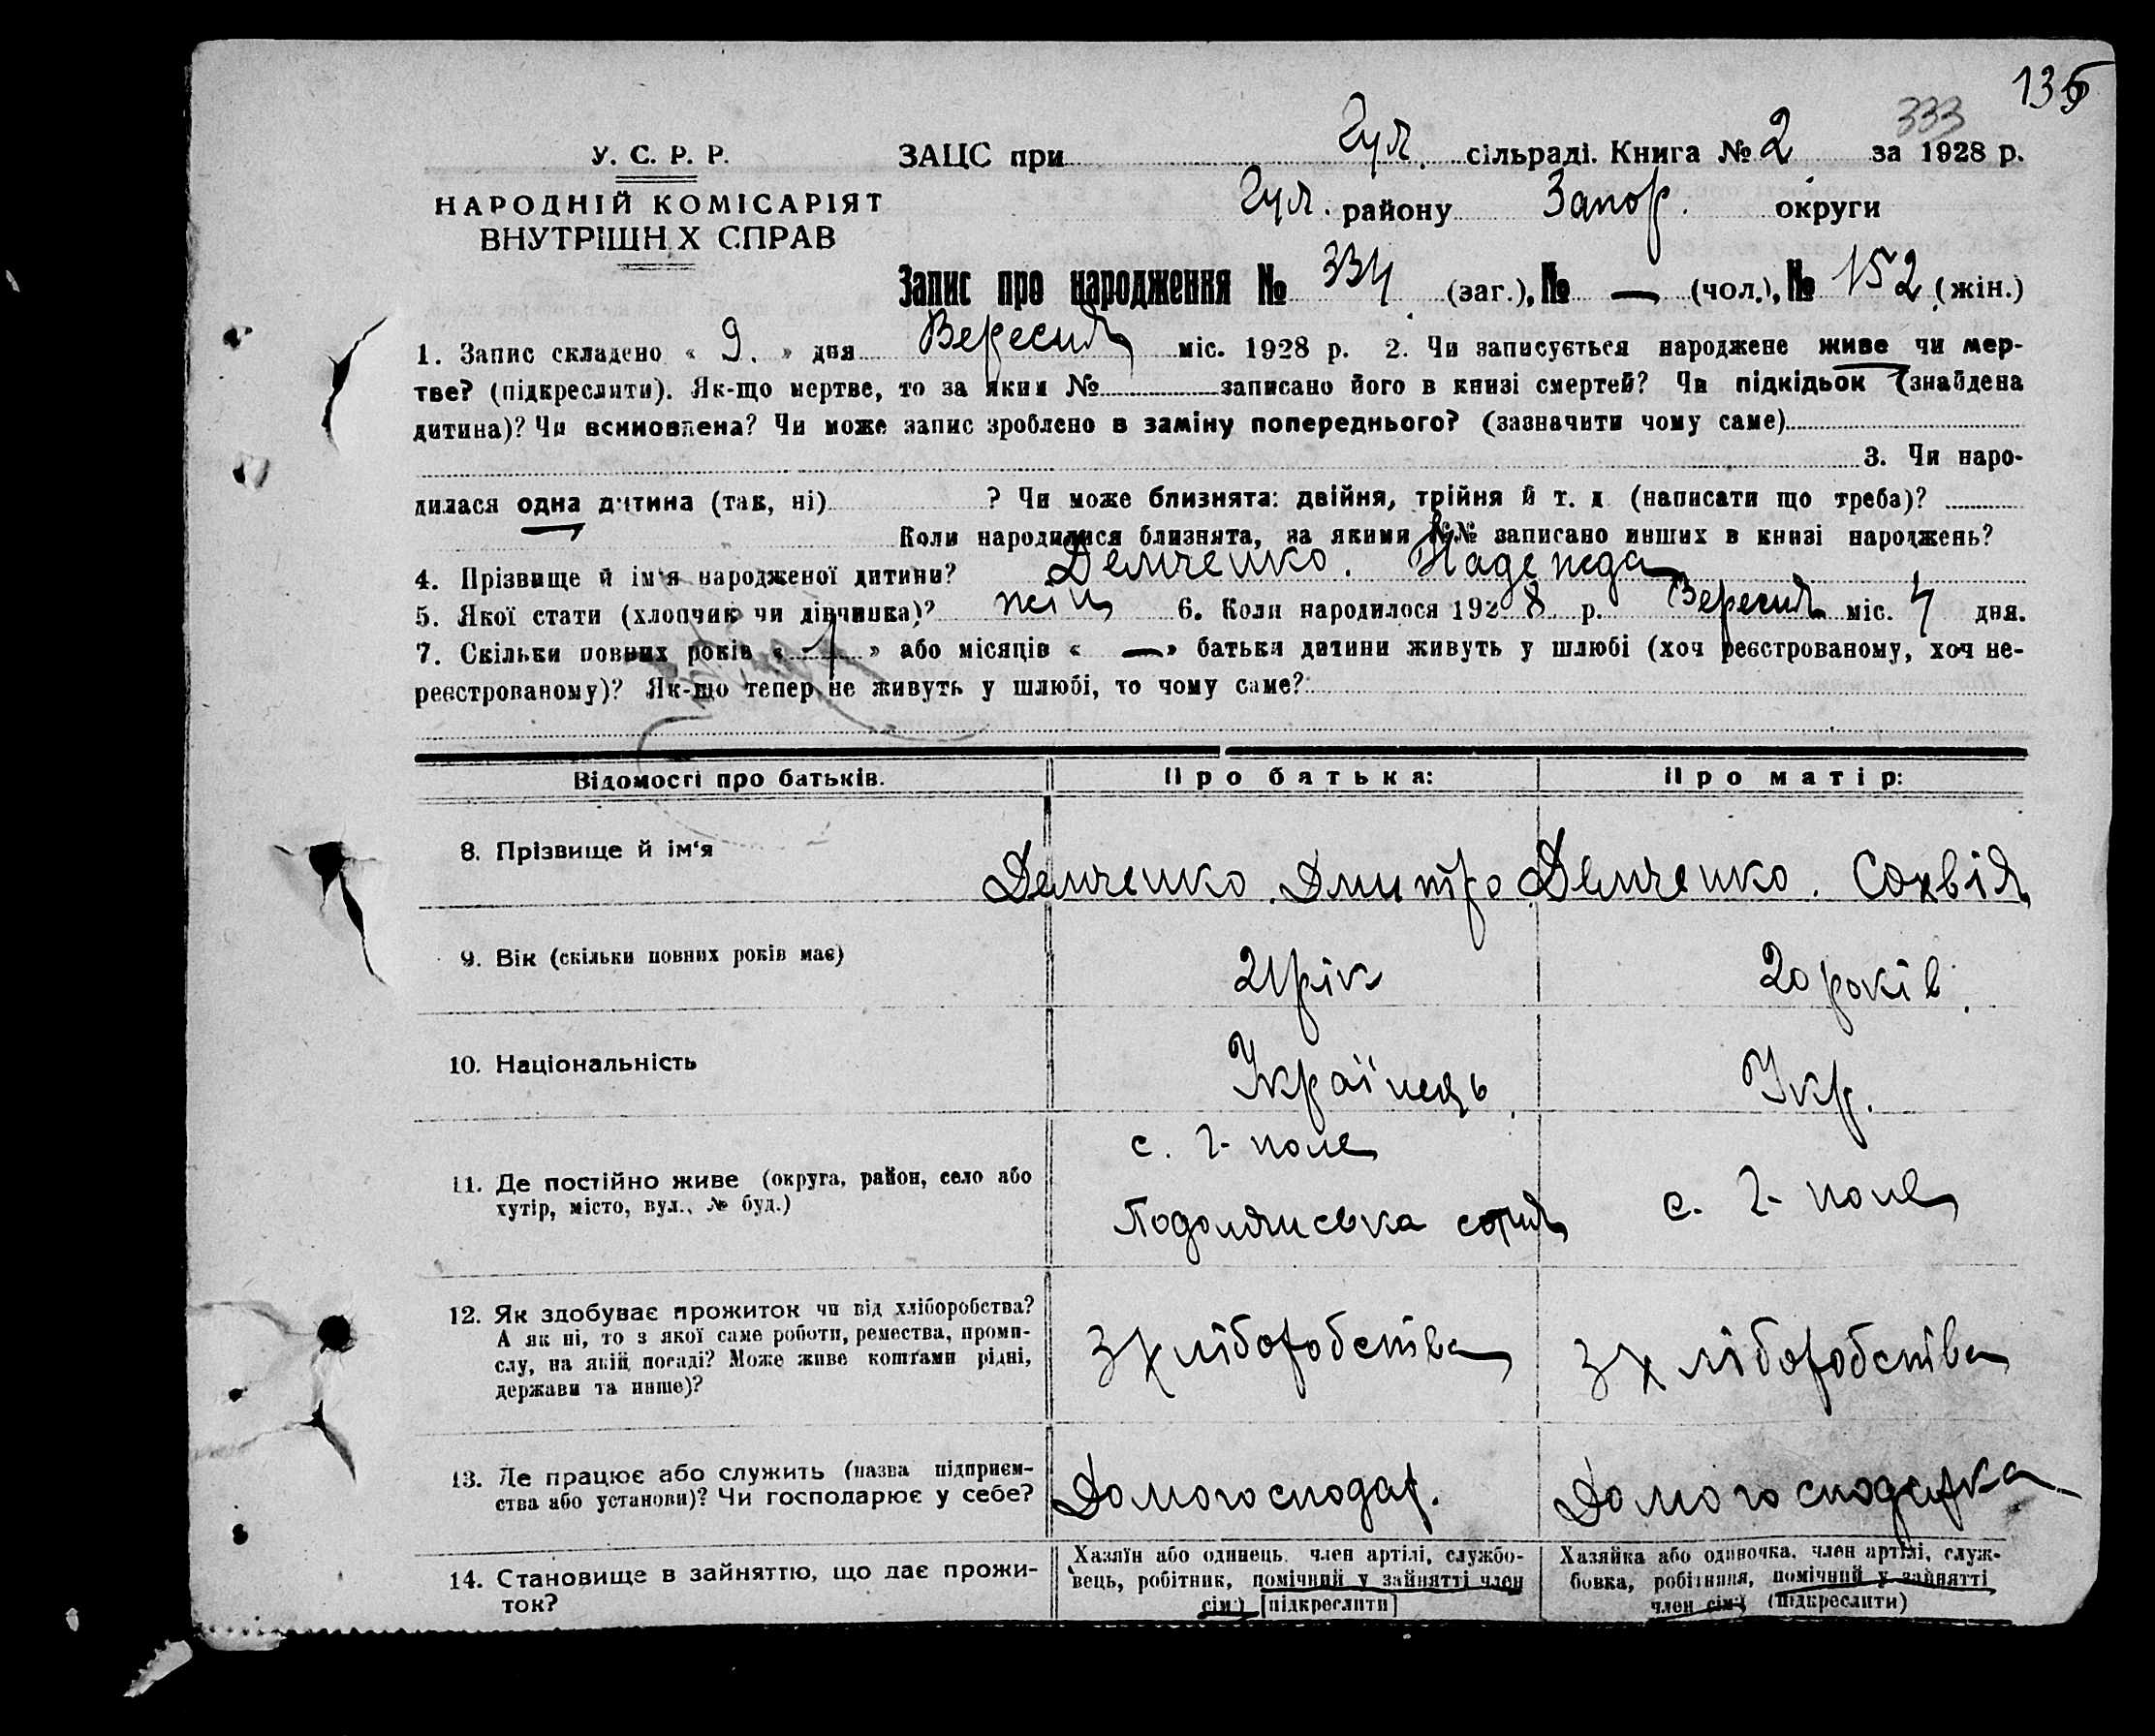 135
333
У. С. Р. Р.
ЗАЦС при Гул. сільраді. Книга № 2 за 1928 р.
НАРОДНІЙ КОМІСАРІЯТ
Гул. району Запор. округи
ВНУТРІШН Х СПРАВ
Запис про народження № 334 (заг.), № — (чол.), № 152 (жін.)
1. Запис складено « 9. » дня Вересня міс. 1928 р. 2. Чи записується народжене живе чи мер-
тве? (підкреслити). Як-що мертве, то за яким № записано його в книзі смертей? Чи підкідьок (знайдена
дитина)? Чи всиновлена? Чи може запис зроблено в заміну попереднього? (зазначити чому саме)
3. Чи наро-
дилася одна дитина (так, ні) ? Чи може близнята: двійня, трійня й т. д. (написати що треба)?
Коли народилися близнята, за якими №№ записано инших в книзі народжень?
4. Прізвище й ім'я народженої дитини? Демченко. Надежда
5. Якої стати (хлопчик чи дівчинка)? жін 6. Коли народилося 1928 р. Вересня міс. 4 дня.
7. Скільки повних років « 1 » або місяців « — » батьки дитини живуть у шлюбі (хоч реєстрованому, хоч не-
реєстрованому)? Як-що тепер не живуть у шлюбі, то чому саме?
Відомості про батьків. Про батька: Про матір:
8. Прізвище й ім'я Демченко. Дмитро Демченко. Сохвія
9. Вік (скільки повних років має) 21 рік 20 років.
10. Національність Українець Укр.
с. Г-поле
11. Де постійно живе (округа, район, село або
хутір, місто, вул., № буд.) Подолянська сотня с. Г-поле
12. Як здобуває прожиток чи від хліборобства?
А як ні, то з якої саме роботи, ремества, проми-
слу, на якій посаді? Може живе коштами рідні,
держави та инше)? З хліборобства З хліборобства
13. Де працює або служить (назва підприєм-
ства або установи)? Чи господарює у себе? Домогосподар. Домогосподарка
14. Становище в зайняттю, що дає прожи-
ток?
Хазяїн або одинець, член артілі, службо-
вець, робітник, помічний у зайнятті член
сім'ї [підкреслити]
Хазяйка або одиночка, член артілі, служ-
бовка, робітниця, помічний у зайнятті
член сім'ї (підкреслити)